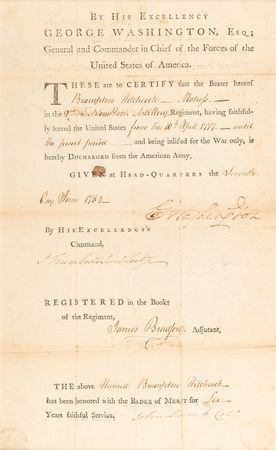 BY HIS EXCELLENCY
GEORGE WASHINGTON, Esq;
General and Commander in Chief of the Forces of the
United States of America.
THESE are to CERTIFY that the Bearer hereof
Brampton Hitchcock Matross
in the 2d Artillery Regiment, having faithful-
ly served the United States from the 10th April 1777 until
the present period and being inlisted for the War only, is
hereby DISCHARGED from the American Army.
GIVEN at HEAD-QUARTERS the Seventh
Day June 1783
G Washington
By HIS EXCELLENCY'S
Command,
J Trumbull
REGISTERED in the Books
of the Regiment,
James Bradford Adjutant,
THE above Named Brampton Hitchcock
has been honored with the BADGE of MERIT for Six
Years faithful Service. John Lamb Col